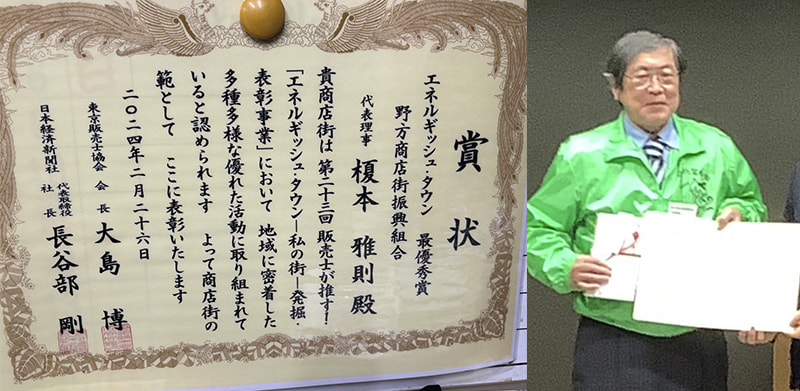 賞状
エネルギッシュ・タウン 最優秀賞
野方商店街振興組合
代表理事 榎本 雅則 殿
貴商店街は 第二十三回 販売士が推す!
「エネルギッシュ・タウン―私の街―発掘・
表彰事業」において 地域に密着した
多種多様な優れた活動に取り組まれて
いると認められます よって商店街の
範として ここに表彰いたします
二〇二四年二月二十六日
東京販売士協会 会長 大島 博
日本経済新聞社 代表取締役社長 長谷部 剛